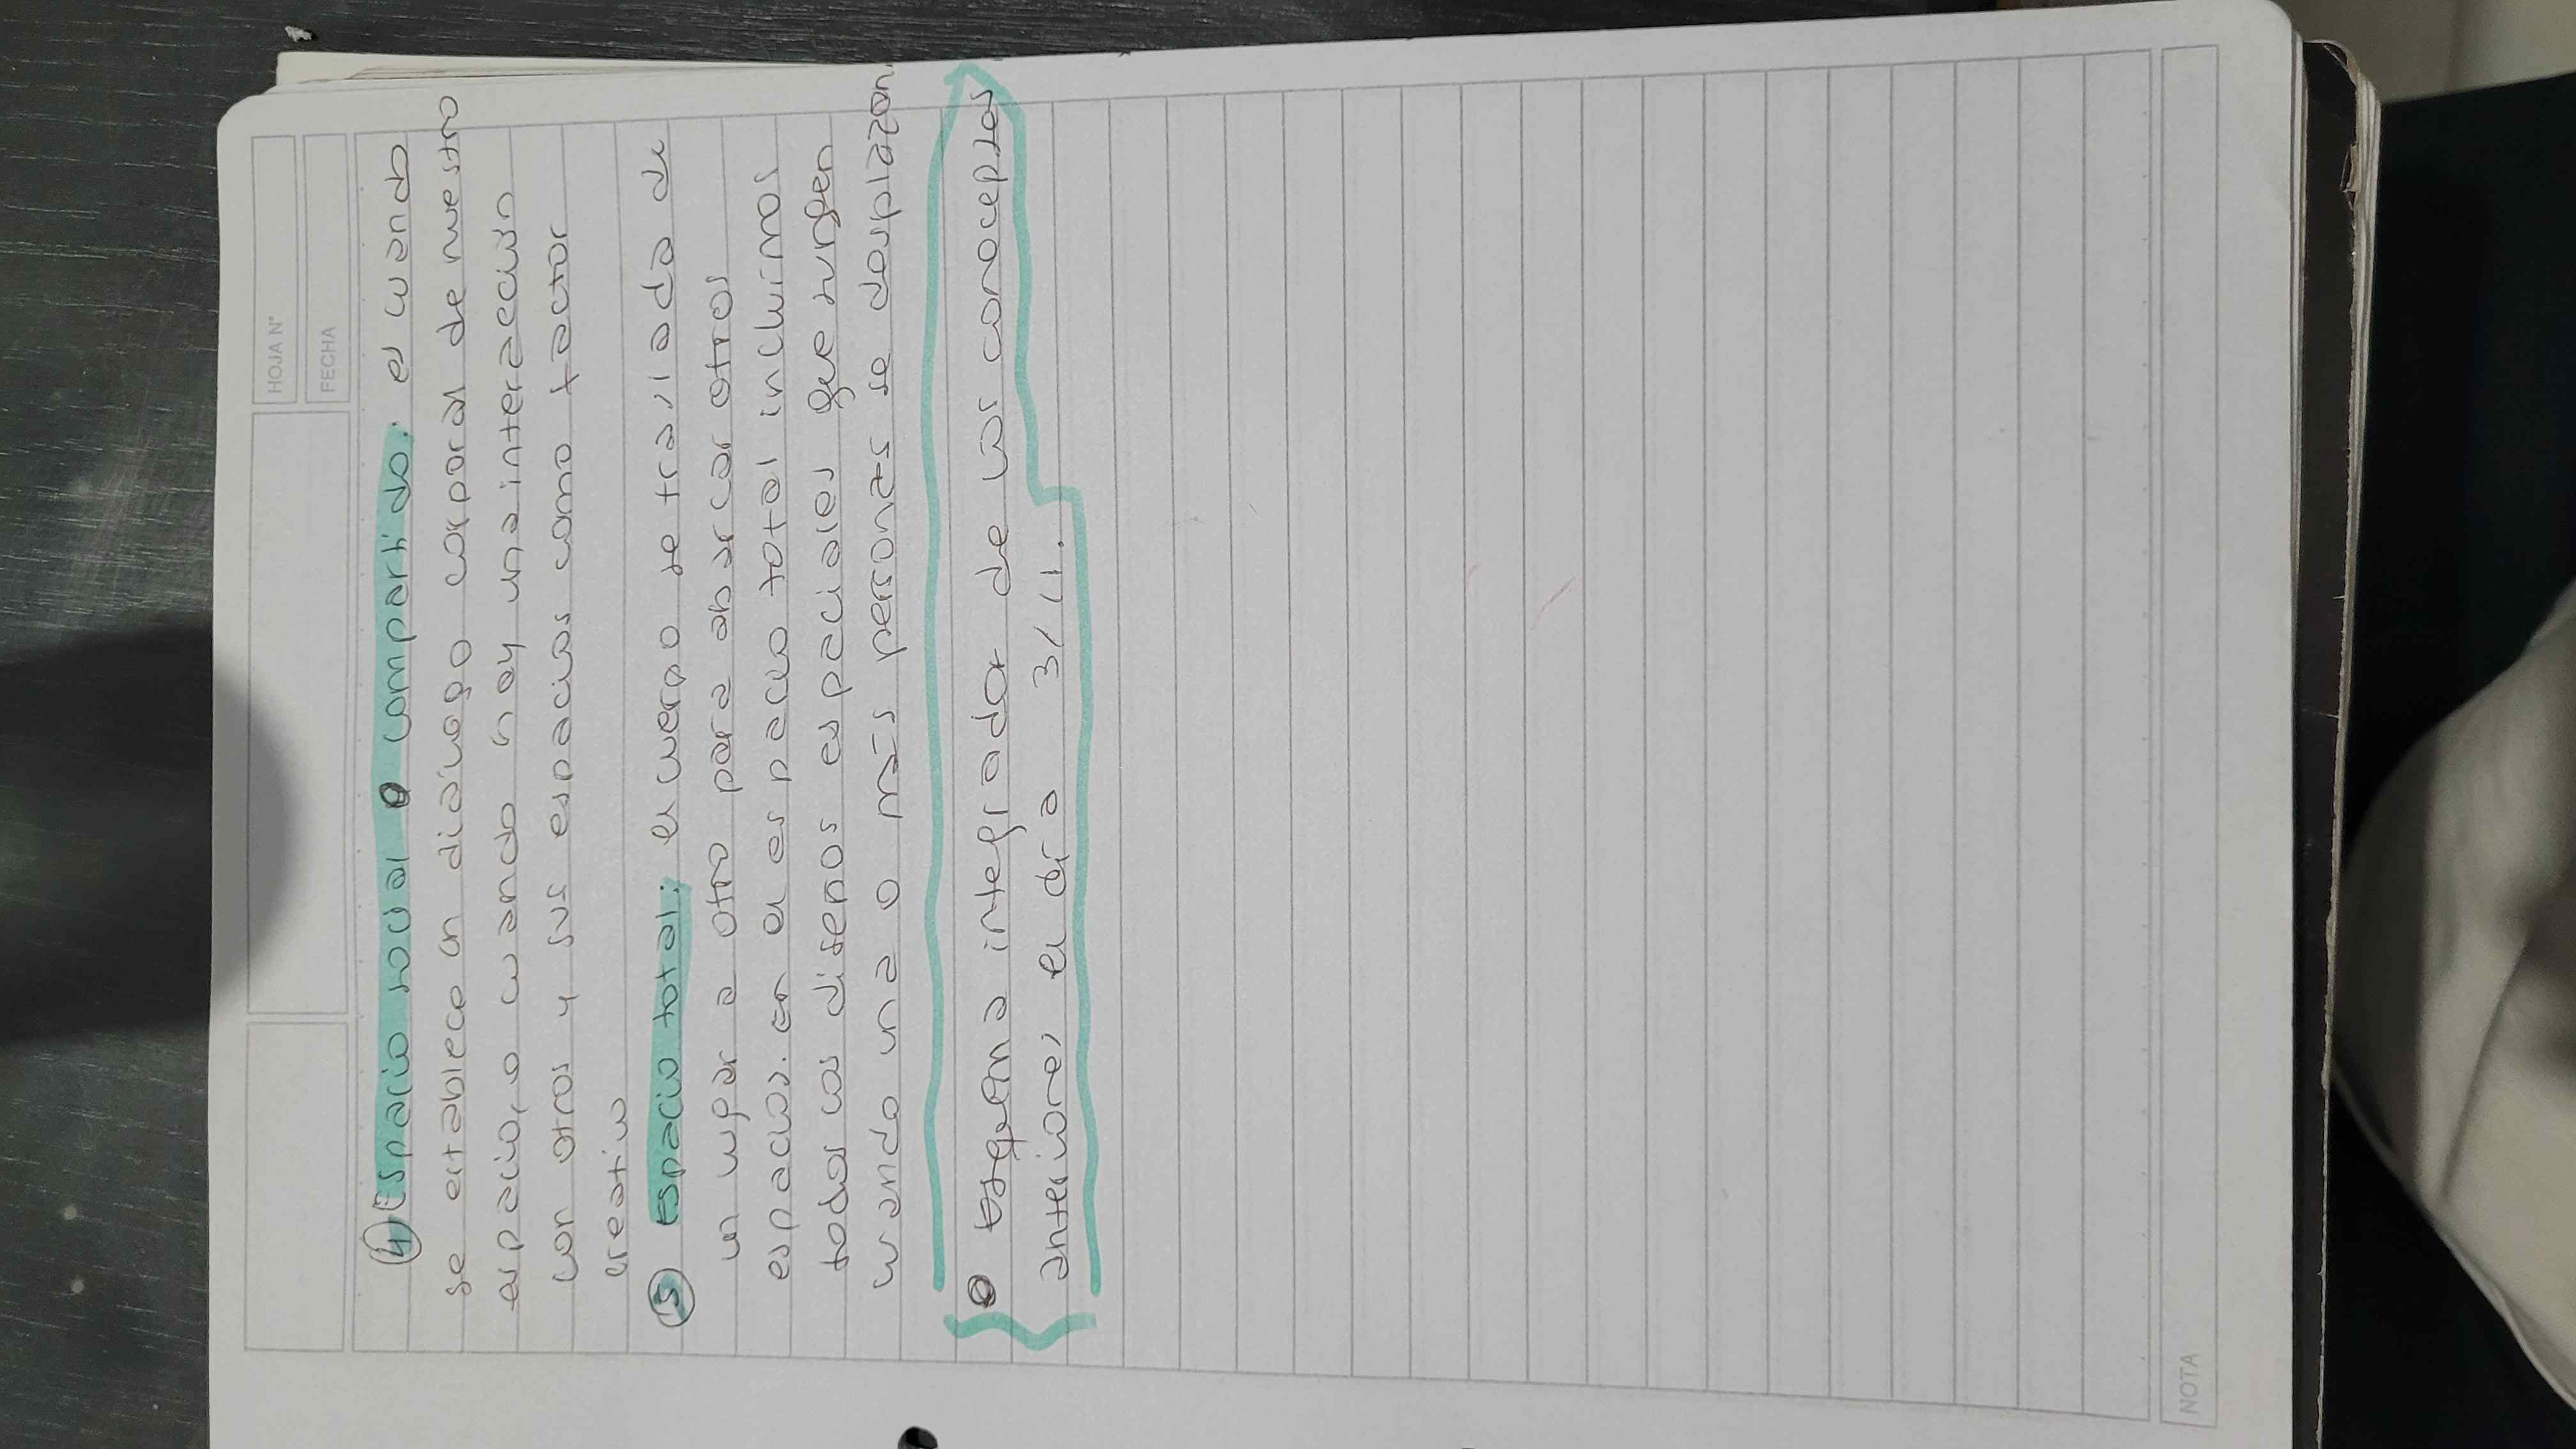 HOJA N°
FECHA
④ Espacio social o compartido: es cuando
se establece un diálogo corporal de nuestro
espacio, o cuando hay una interacción
con otros y sus espacios como factor
creativo
⑤ Espacio total: el cuerpo se traslada de
un lugar a otro para abarcar otros
espacios. en el espacio total incluimos
todos los diseños espaciales que surgen
cuando una o más personas se desplazan.
Esquema integrador de los conoceptos
anteriores el día 3/11.
NOTA